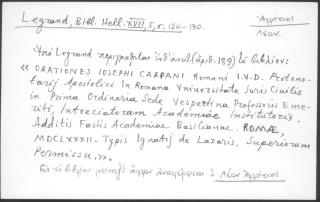 Legrand, Bibl. Hell. XVII, 5, σ. 124-130.
Ἀλλάτιος
Λέων.
Ὑπὸ Legrand περιγράφεται ἐνθ' ἀνωτ. (ἀριθ. 189) τὸ βιβλίον:
« ORATIONES IOSEPHI CARPANI Romani I.V.D. Protono-
tarij Apostolici In Romana Vniversitate Iuris Civilis
in Prima Ordinaria Sede Vespertina Professoris Eme-
riti, Intrecciatorum Academiae Institutoris.
Additis Fastis Academiae Basilianae. ROMÆ,
MDCLXXXII. Typis Ignatij de Lazaris. Superiorum
Permissu. ».
μεταξὺ ἄλλων ἀναφέρεται ὁ Λέων Ἀλλάτιος